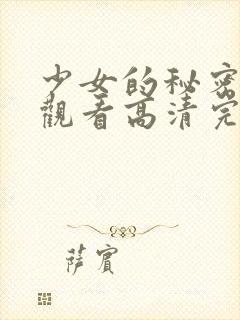 少女的秘密
觀看高清完
萨宾